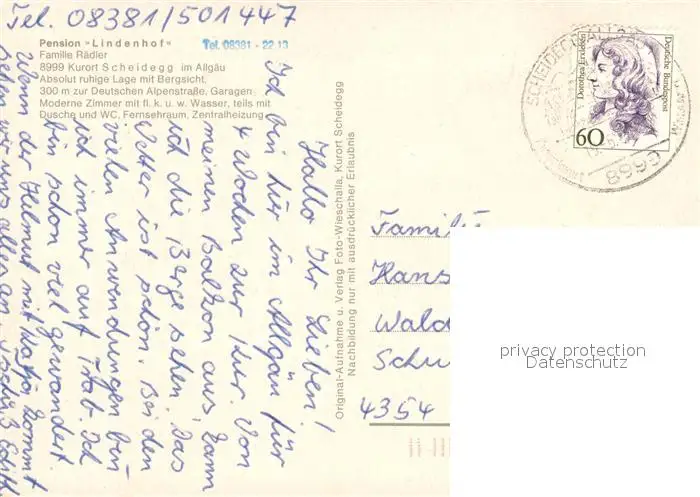 Tel. 08381/501447
Pension "Lindenhof"
Tel. 08381 - 22 13
Familie Rädler
8999 Kurort Scheidegg im Allgäu
Absolut ruhige Lage mit Bergsicht,
300 m zur Deutschen Alpenstraße, Garagen
Moderne Zimmer mit fl. k. u. w. Wasser, teils mit
Dusche und WC, Fernsehraum, Zentralheizung
Hallo Ihr Lieben!
Ich bin hier im Allgäu für
4 Wochen zur Kur. Von
meinen Balkon aus, kann
ich die Berge sehen. Das
Wetter ist schön. Bei den
vielen Anwendungen bin
ich immer auf Trab. Ich
bin schon viel gewandert.
Wenn der Helmut mit Katja kommt
sehen wir uns alles an.
Original-Aufnahme u. Verlag Foto-Wieschalla, Kurort Scheidegg
Nachbildung nur mit ausdrücklicher Erlaubnis
Dorothea Erxleben
Deutsche Bundespost
60
SCHEIDEGG, ALLGÄU
8999
Familie
Hans
Wald
Schu
4354
privacy protection
Datenschutz